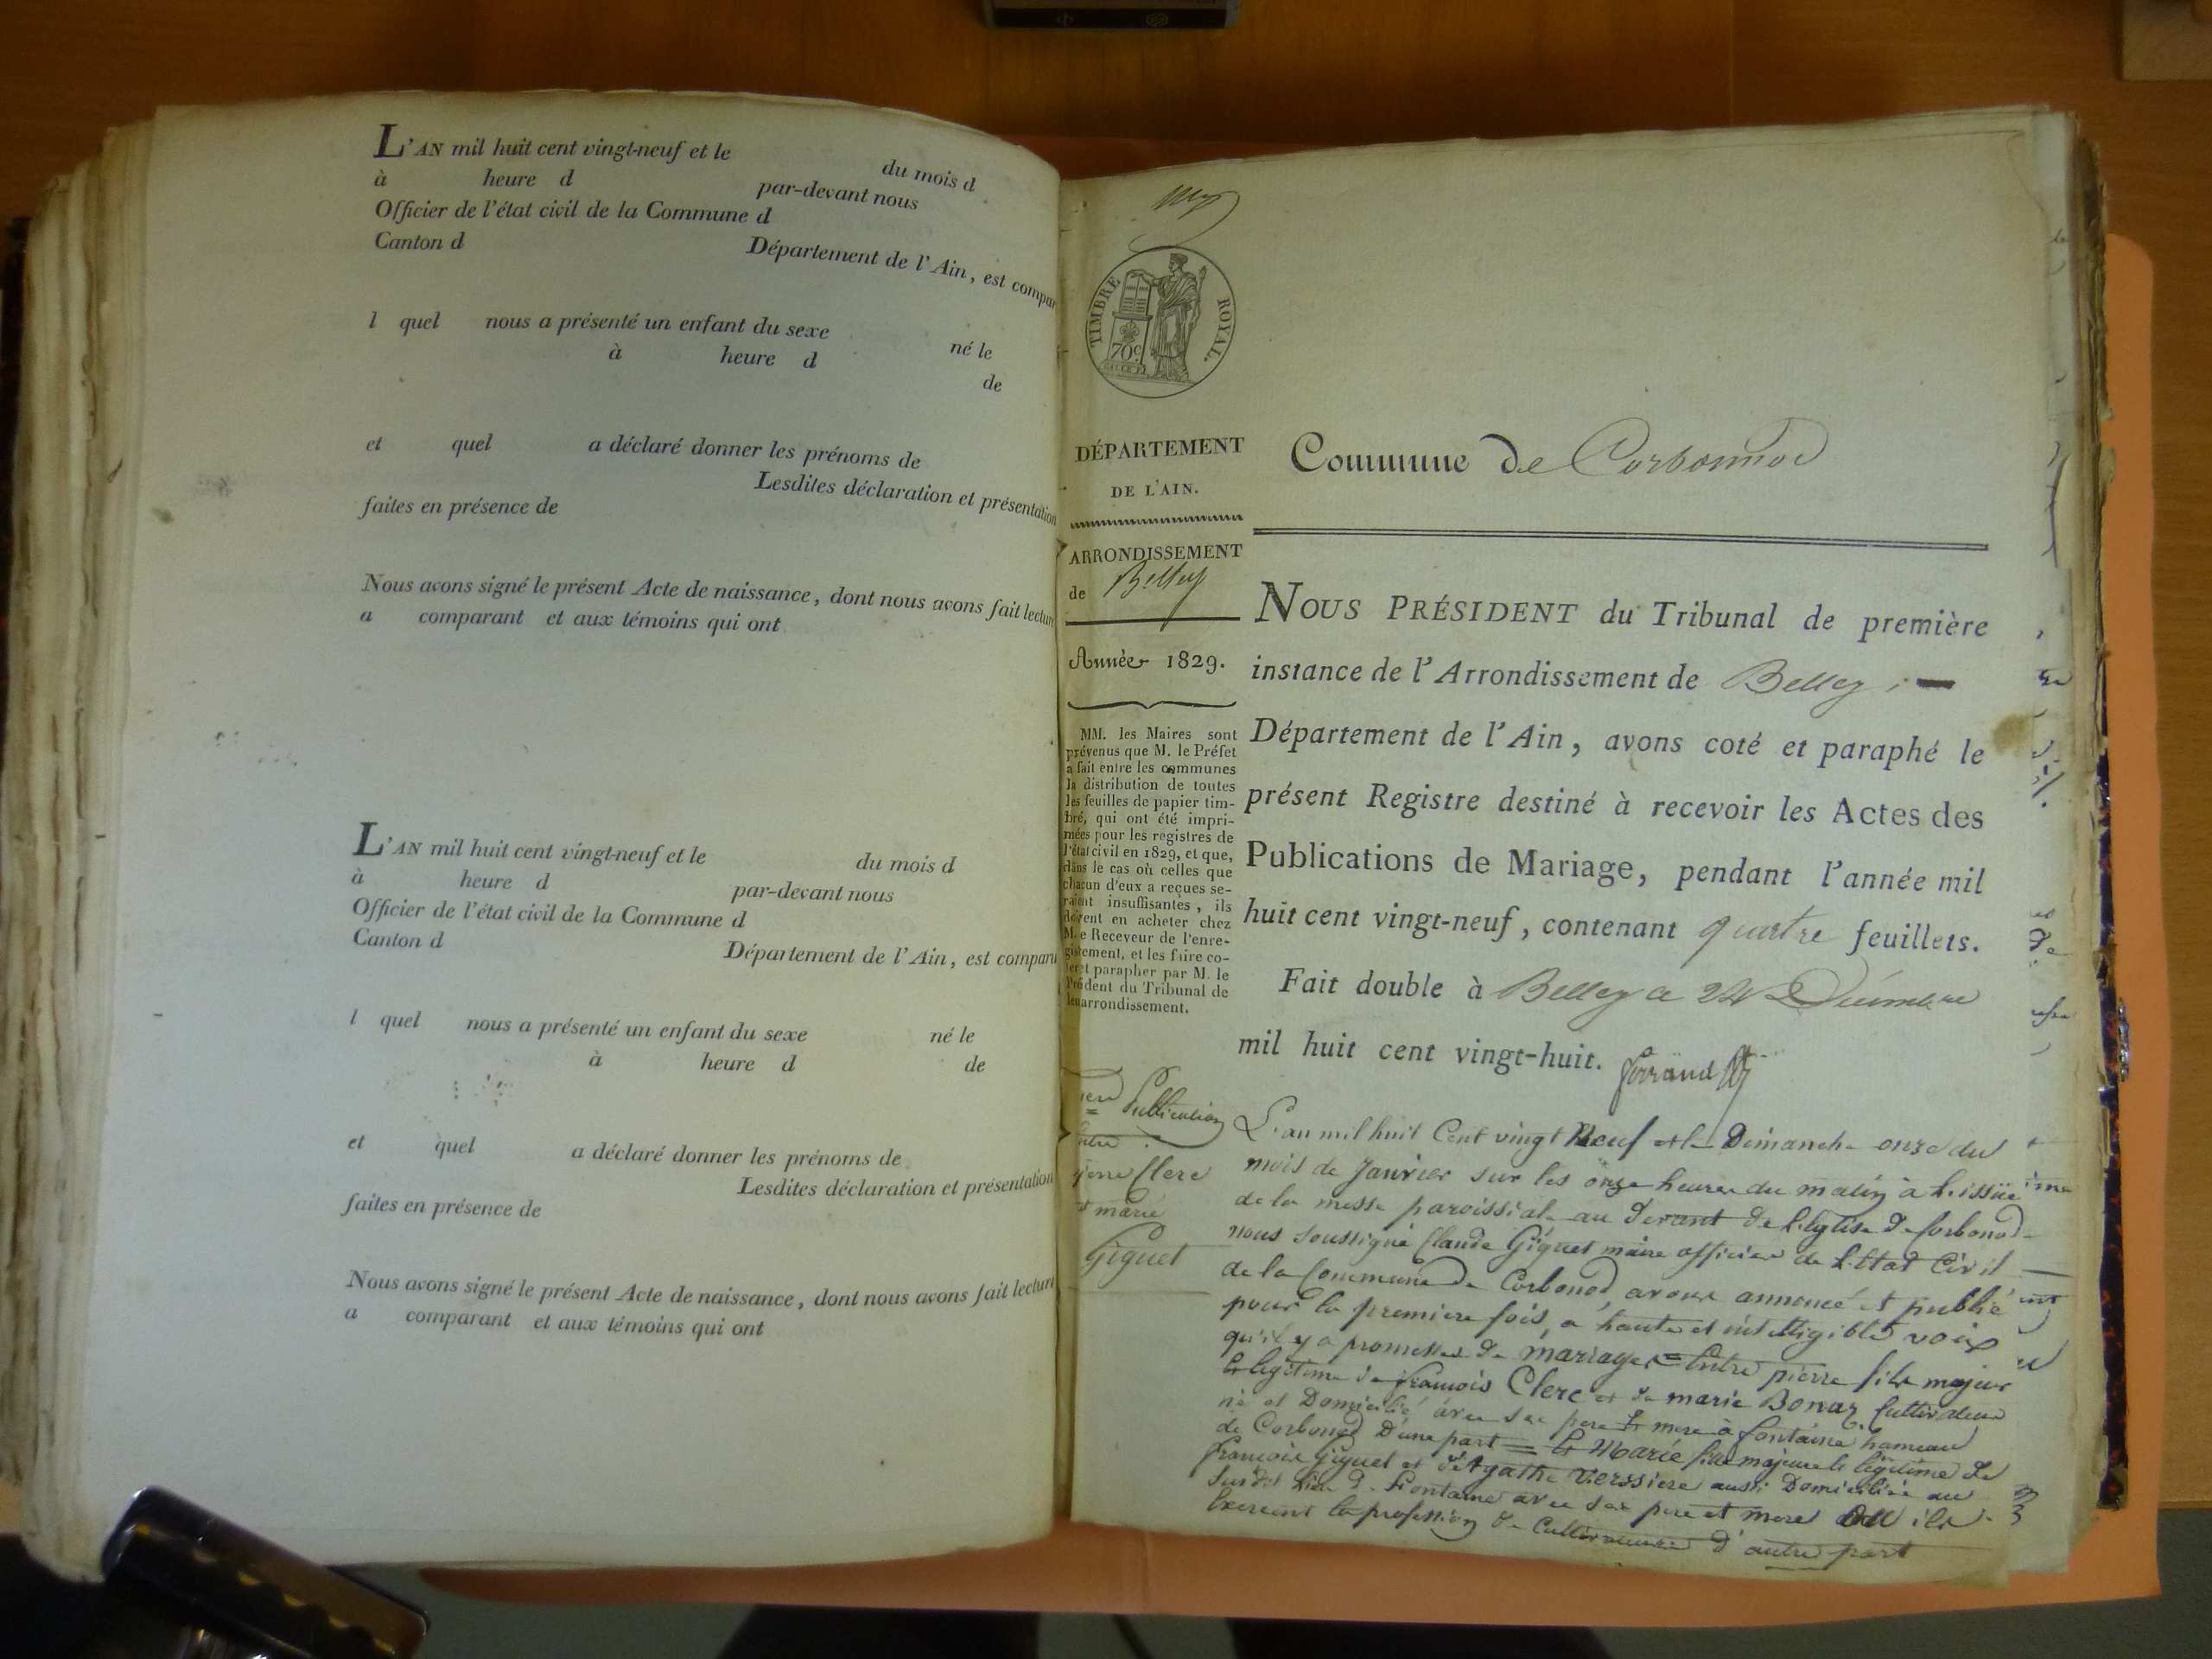 L'AN mil huit cent vingt-neuf et le du mois d
à heure d par-devant nous
Officier de l'état civil de la Commune d
Canton d Département de l'Ain, est compar
l quel nous a présenté un enfant du sexe né le
à heure d de
et quel a déclaré donner les prénoms de
Lesdites déclaration et présentation
faites en présence de
Nous avons signé le présent Acte de naissance, dont nous avons fait lecture
a comparant et aux témoins qui ont
L'AN mil huit cent vingt-neuf et le du mois d
à heure d par-devant nous
Officier de l'état civil de la Commune d
Canton d Département de l'Ain, est comparu
l quel nous a présenté un enfant du sexe né le
à heure d de
et quel a déclaré donner les prénoms de
Lesdites déclaration et présentation
faites en présence de
Nous avons signé le présent Acte de naissance, dont nous avons fait lecture
a comparant et aux témoins qui ont
TIMBRE ROYAL.
70c
DÉPARTEMENT
DE L'AIN.
ARRONDISSEMENT
de Belley
Année 1829.
MM. les Maires sont
prévenus que M. le Préfet
a fait entre les communes
la distribution de toutes
les feuilles de papier tim-
bré, qui ont été impri-
mées pour les registres de
l'état civil en 1829, et que,
dans le cas où celles que
chacun d'eux a reçues se-
raient insuffisantes, ils
doivent en acheter chez
M. le Receveur de l'enre-
gistrement, et les faire co-
ter et parapher par M. le
Président du Tribunal de
leur arrondissement.
Commune de Corbonnod
NOUS PRÉSIDENT du Tribunal de première
instance de l'Arrondissement de Belley
Département de l'Ain, avons coté et paraphé le
présent Registre destiné à recevoir les Actes des
Publications de Mariage, pendant l'année mil
huit cent vingt-neuf, contenant quatre feuillets.
Fait double à Belley ce 24 Décembre
mil huit cent vingt-huit.
Publication
pierre Clerc
et marie
Giguet
L'an mil huit Cent vingt Neuf et le Dimanche onze du
mois de Janvier sur les onze heures du matin à l'issüe
de la messe paroissiale au devant de l'Eglise de Corbonod
nous soussigné Claude Giguet maire officier de l'Etat Civil
de la Commune de Corbonod avons annoncé et publié
pour la premiere fois, a haute et intelligible voix
qu'il y a promesses de mariage = Entre pierre fils majeur
et legitime de françois Clerc et de marie Bonaz Cultivateur
né et Domicilié avec ses pere et mere à fontaine hameau
de Corbonod D'une part = Et Marie fille majeure et legitime de
françois Giguet et d'Agathe Verssiere aussi Domiciliée au
susdit Lieu de fontaine avec ses pere et mere où ils
Exercent la profession de Cultivateurs d'autre part